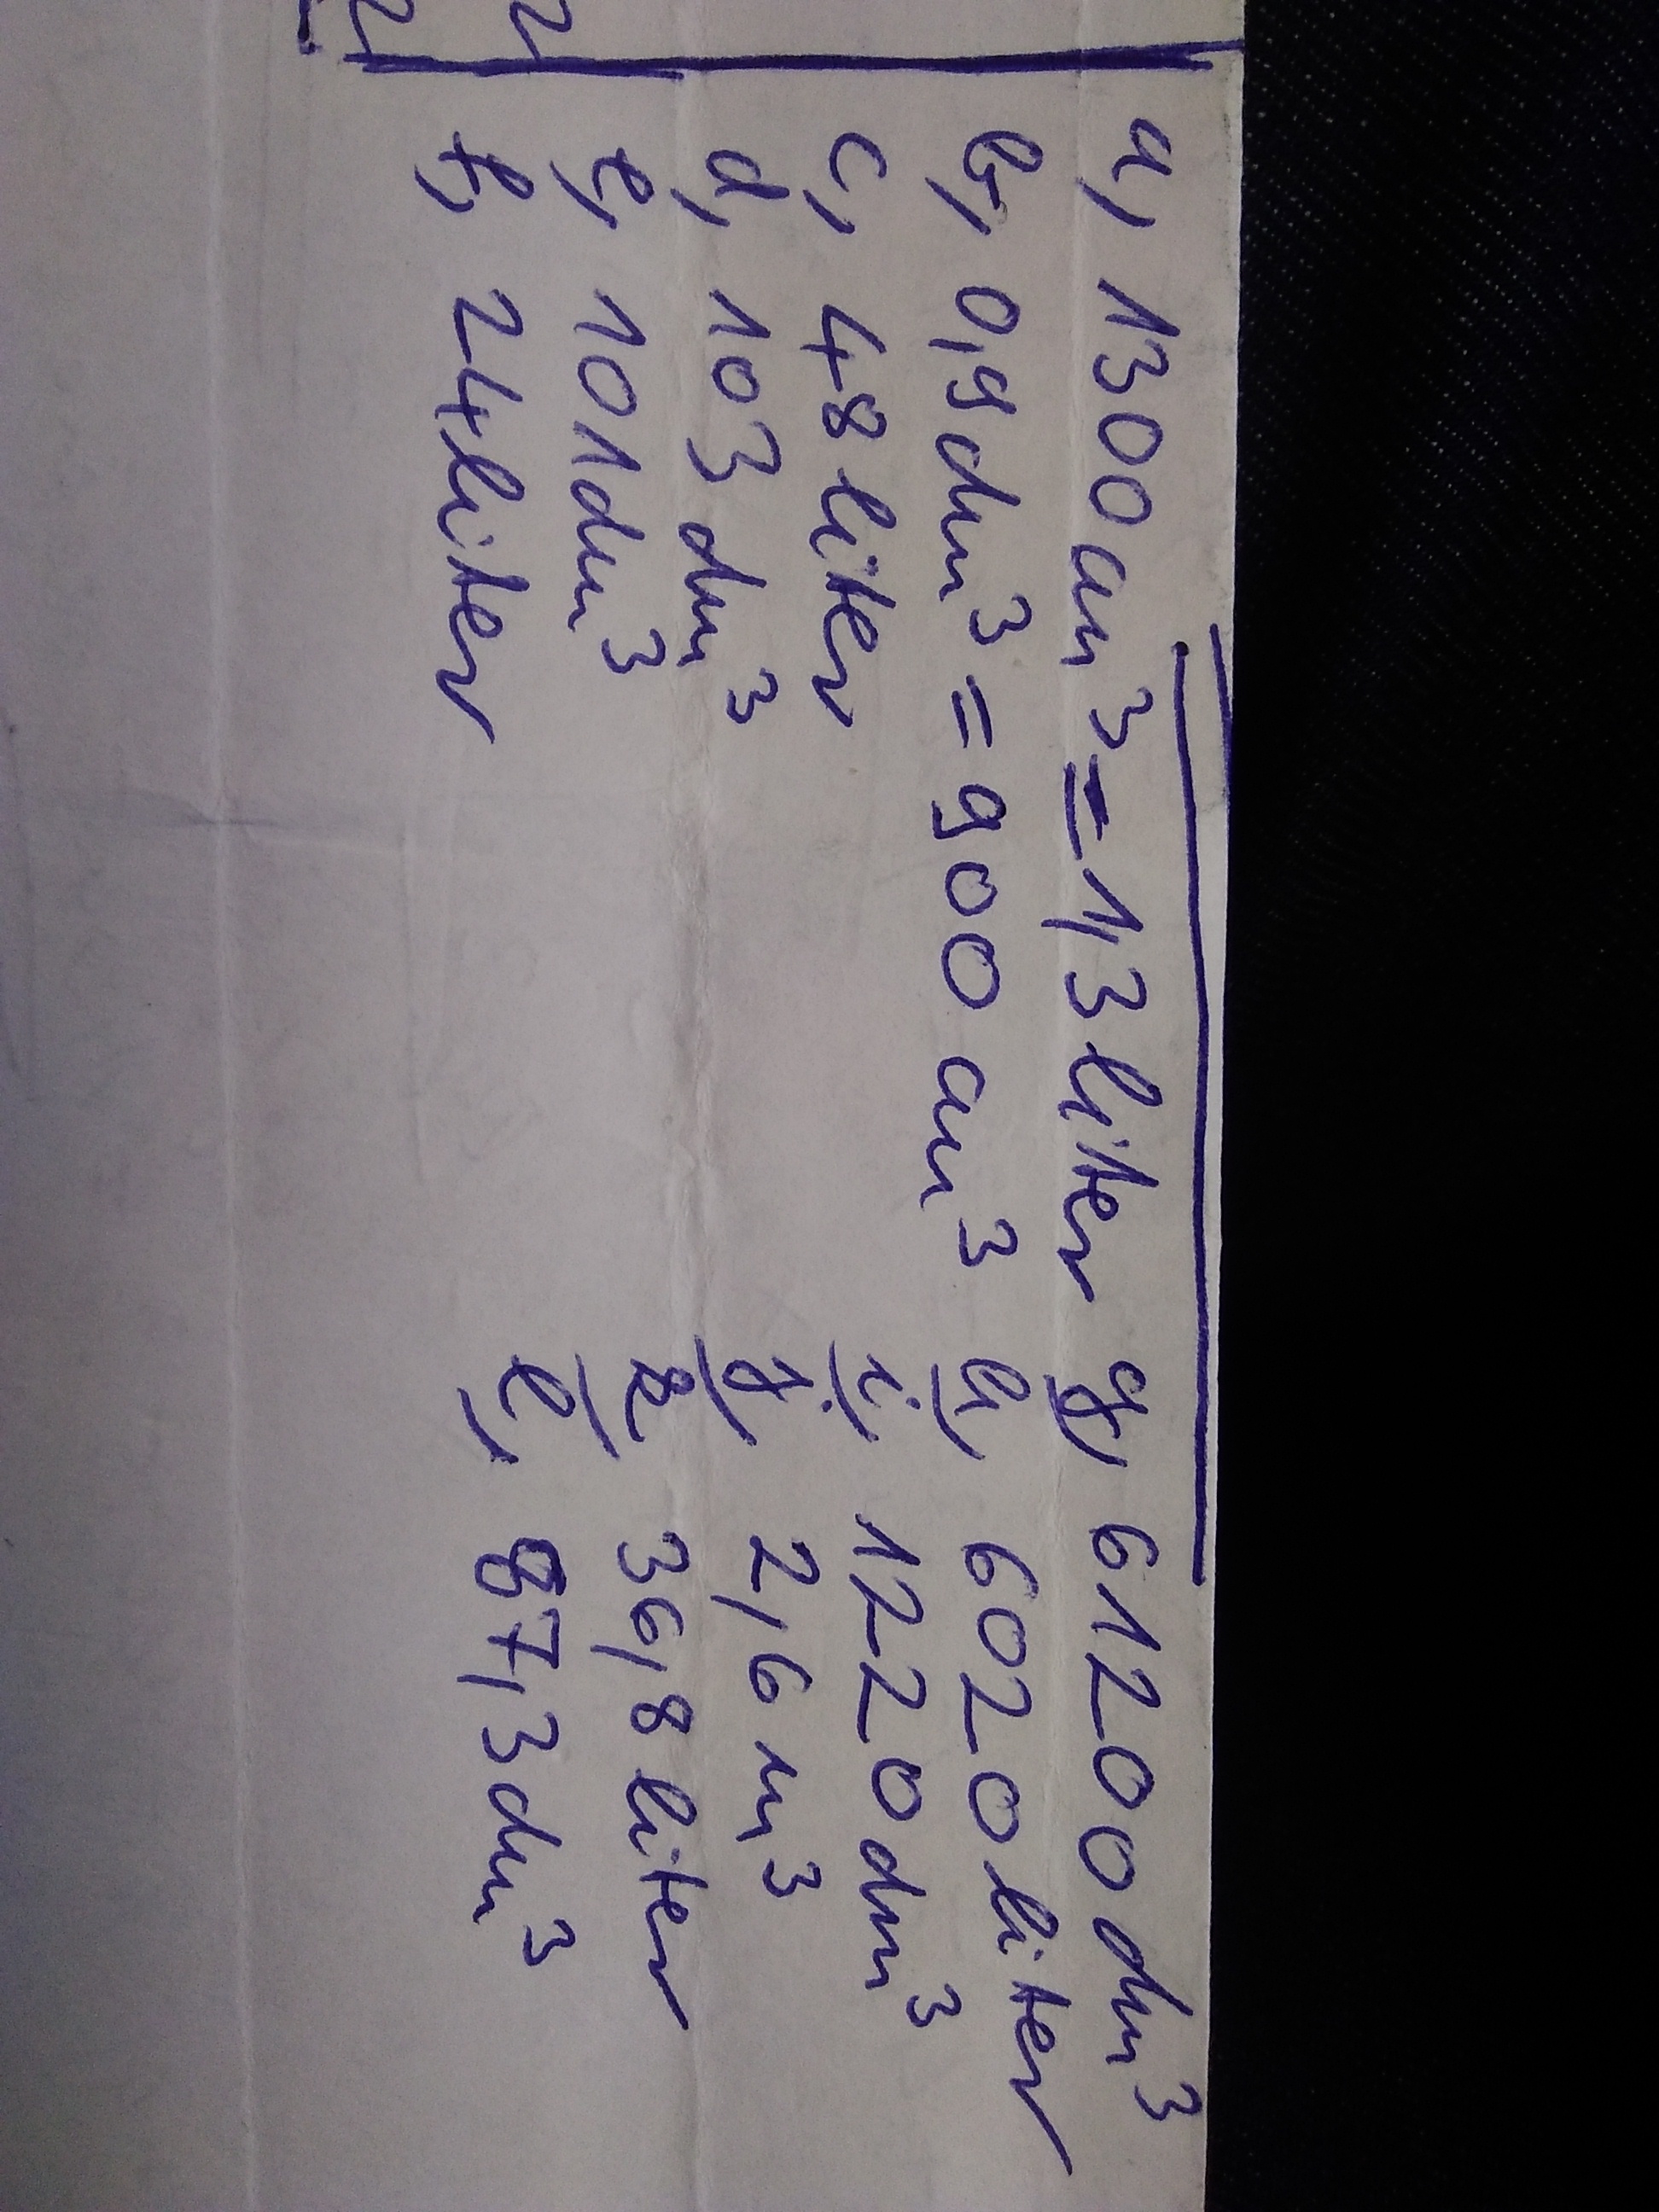 a, 1300 cm³ = 1,3 liter
b, 0,9 dm³ = 900 cm³
c, 48 liter
d, 103 dm³
e, 101 dm³
f, 24 liter
g, 61200 dm³
h, 6020 liter
i, 1220 dm³
j, 2,6 m³
k, 36,8 liter
l, 87,3 dm³